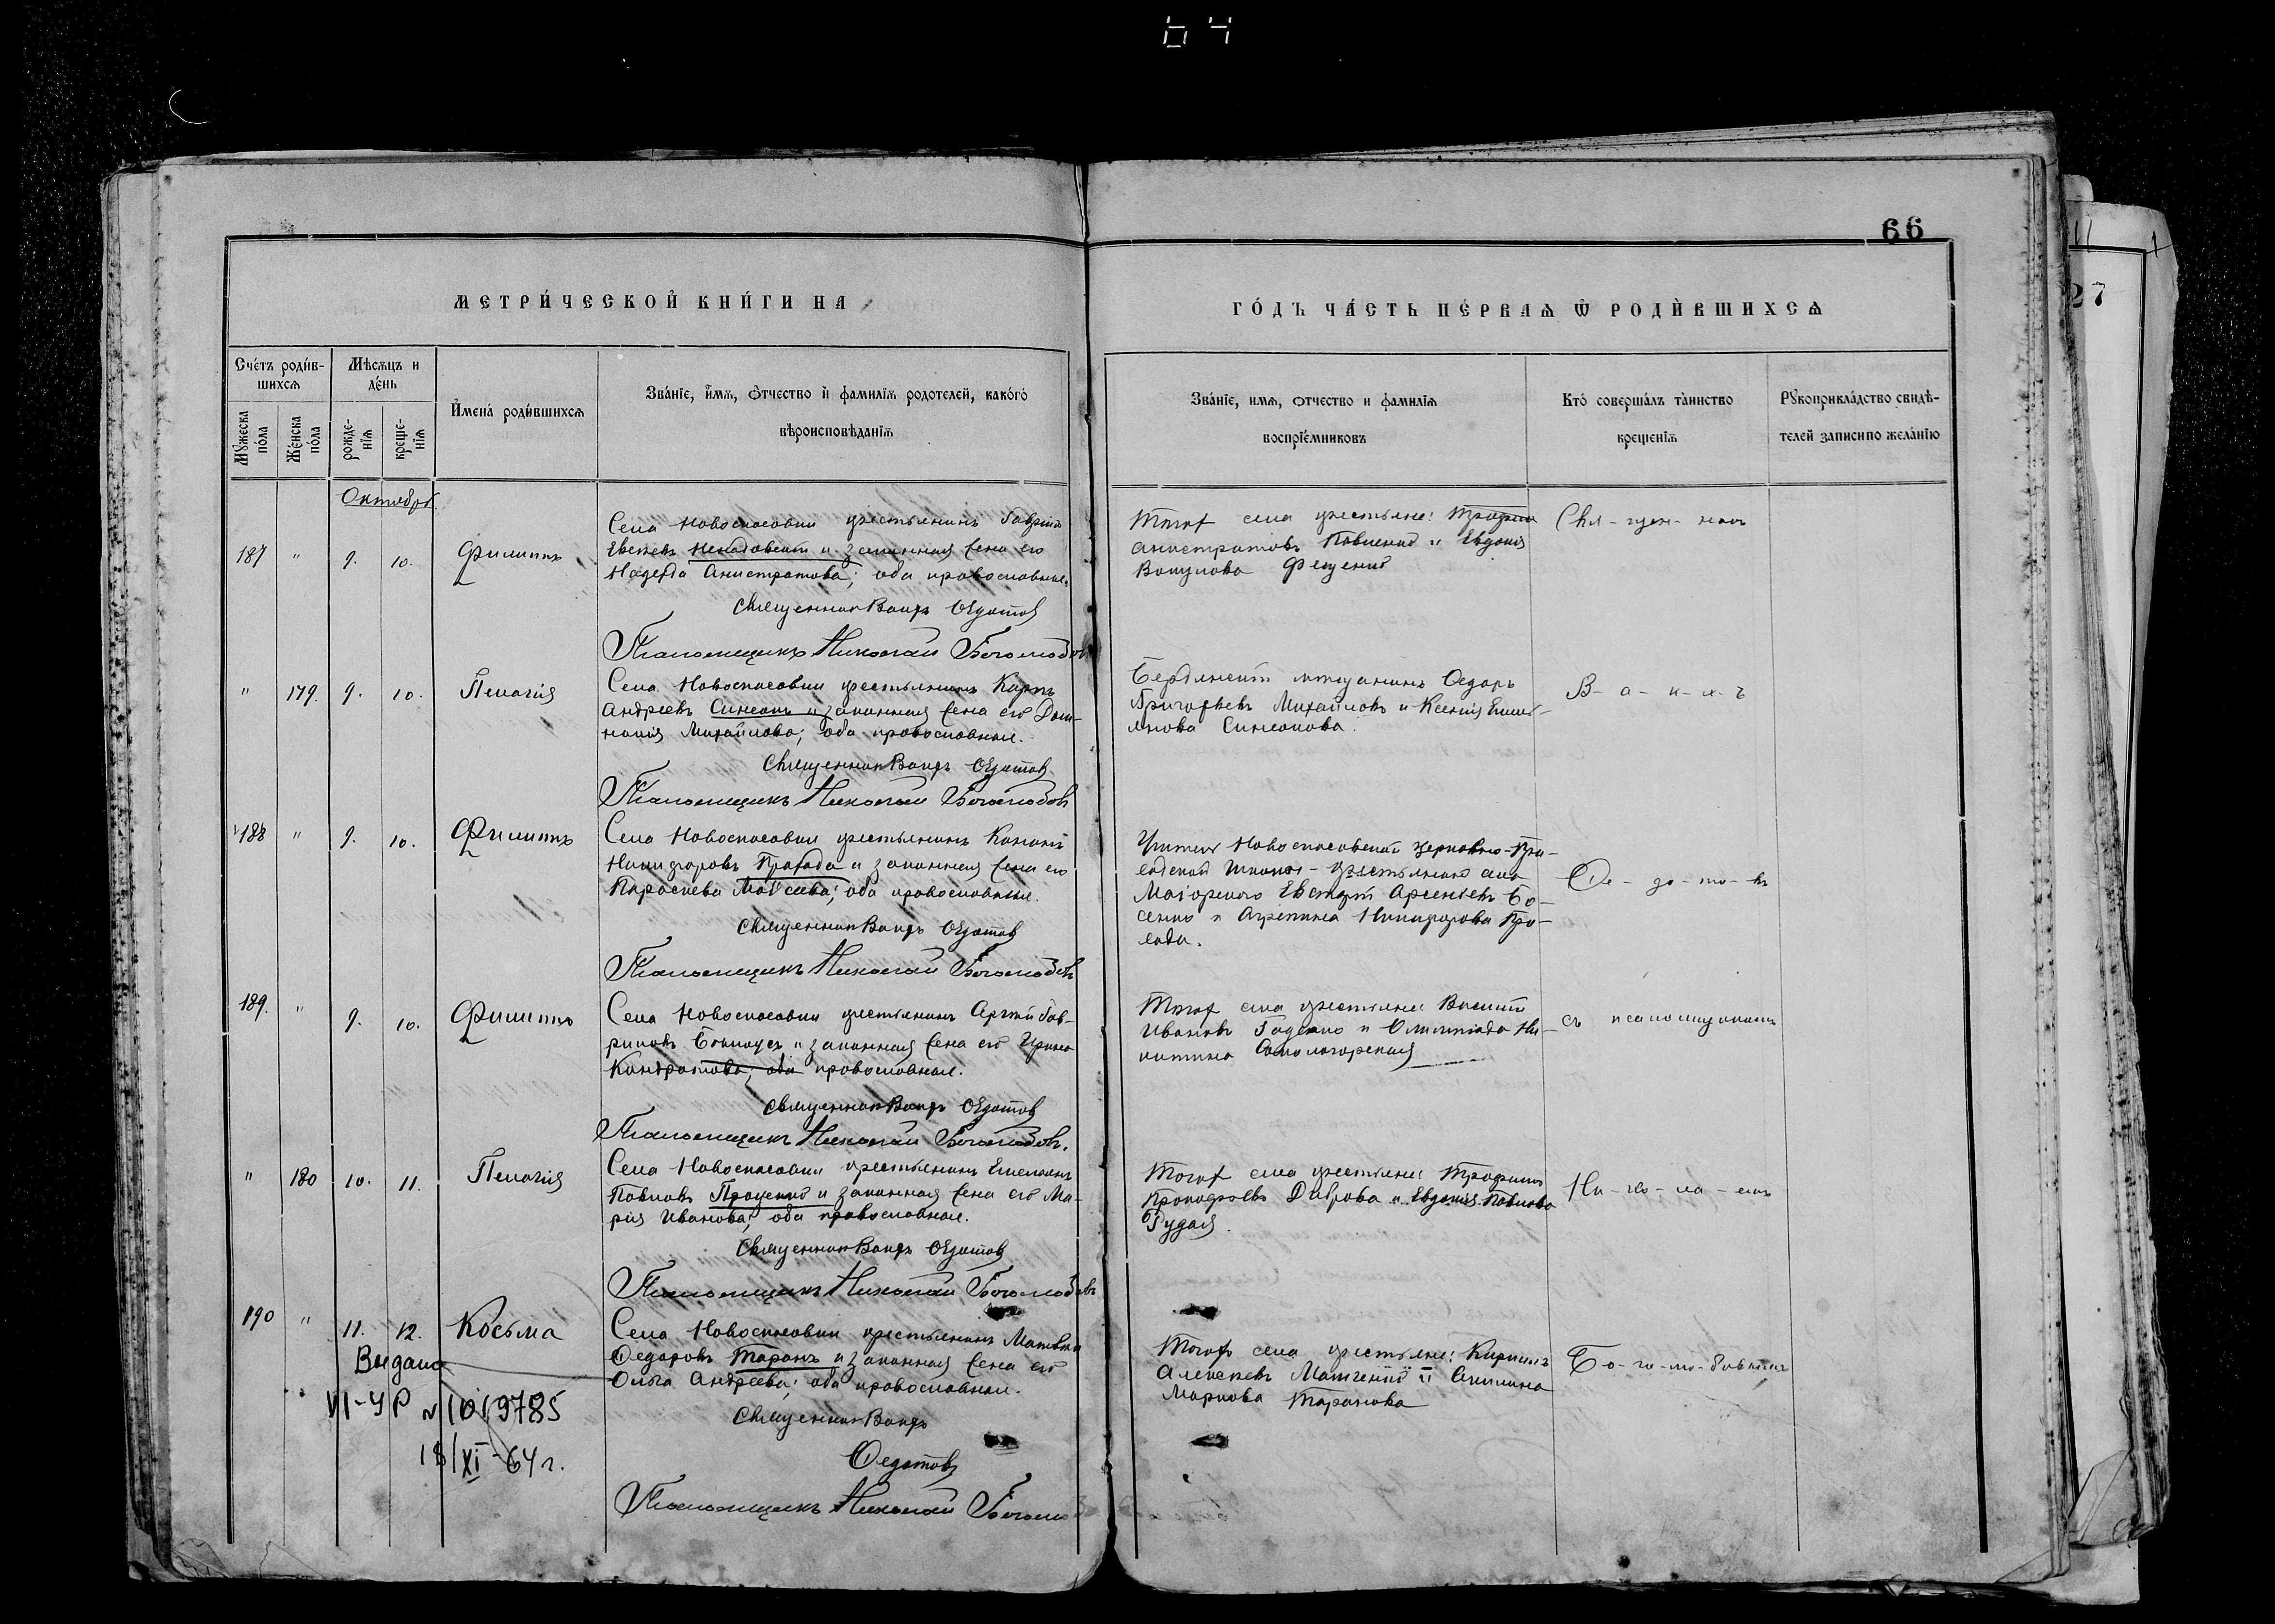 64
66
МЕТРИ́ЧЕСКОЙ КНИ́ГИ НА
ГО́ДЪ ЧА́СТЬ ПЕ́РВАѦ Ѡ РОДИ́ВШИХСѦ
Сче́тъ роди́в-
шихсѧ
Мѣсѧцъ и
де́нь
И҆мена́ роди́вшихсѧ
Зва́нїе, и҆мѧ, ѻтчество и҆ фамилїѧ родителей, како́гѡ
вѣроисповѣданїѧ
Мꙋжеска
по́ла
Же́нска
по́ла
рожде-
нїѧ
креще-
нїѧ
Зва́нїе, имѧ, ѻтчество и фамилїѧ
воспрїе́мниковъ
Кто́ соверша́лъ та̀инство
креще́нїѧ
Рꙋкоприкла́дство свидѣ-
телей записи по жела́нїю
Октябрь
187 " 9. 10. Филиппъ
Села Новоспасовки крестьянинъ Гавріилъ
Евсеевъ и законная жена его
Надежда Анистратова; оба православные.
Священникъ Вакхъ Ѳедотовъ
Псаломщикъ Николай Боголюбовъ
Тогожъ села крестьяне: Трофимъ
Анистратовъ Павленко и Евдокія
Вакулова Фещенко
Свя-щен-никъ
" 179. 9. 10. Пелагія
Села Новоспасовки крестьянинъ Карпъ
Андреевъ Синеокъ и законная жена его Дом-
никія Михайлова; оба православные.
Священникъ Вакхъ Ѳедотовъ
Псаломщикъ Николай Боголюбовъ
Бердянскій мѣщанинъ Ѳедоръ
Григорьевъ Михайловъ и Ксенія Емель-
янова Синеокова.
В-а-к-х-ъ
188 " 9. 10. Филиппъ
Села Новоспасовки крестьянинъ Кононъ
Никифоровъ и законная жена его
Параскева Моѵсеева; оба православные.
Священникъ Вакхъ Ѳедотовъ
Псаломщикъ Николай Боголюбовъ
Учитель Новоспасовской Церковно-При-
ходской школы - крестьянинъ села
Маіорского Евстафій Арсеньевъ Бо-
сенко и Агрипина Никифорова
Ѳе-до-то-въ
189. " 9. 10. Филиппъ
Села Новоспасовки крестьянинъ Сергій Гав-
риловъ Бѣлоусъ и законная жена его Ирина
Кондратова; оба православные.
Священникъ Вакхъ Ѳедотовъ
Псаломщикъ Николай Боголюбовъ.
Тогожъ села крестьяне: Василій
Ивановъ и Олимпіада Ни-
китина
съ псаломщикомъ
" 180 10. 11. Пелагія
Села Новоспасовки крестьянинъ Емельянъ
Павловъ Проценко и законная жена его Ма-
рія Иванова; оба православные.
Священникъ Вакхъ Ѳедотовъ
Псаломщикъ Николай Боголюбовъ
Тогожъ села крестьяне: Трофимъ
Прокофьевъ Диброва и Евдокія Павлова
Гудая.
Ни-ко-ла-емъ
190 " 11. 12. Косьма
Села Новоспасовки крестьянинъ Матвѣй
Ѳедоровъ Таранъ и законная жена его
Ольга Андреева; оба православные.
Священникъ Вакхъ
Ѳедотовъ
Псаломщикъ Николай Боголю
Тогожъ села крестьяне: Кириллъ
Алексеевъ и Акилина
Маркова Таранова
Бо-го-лю-бовымъ
Выдано
VI-УР N 1019785
18/XI-64 г.
27